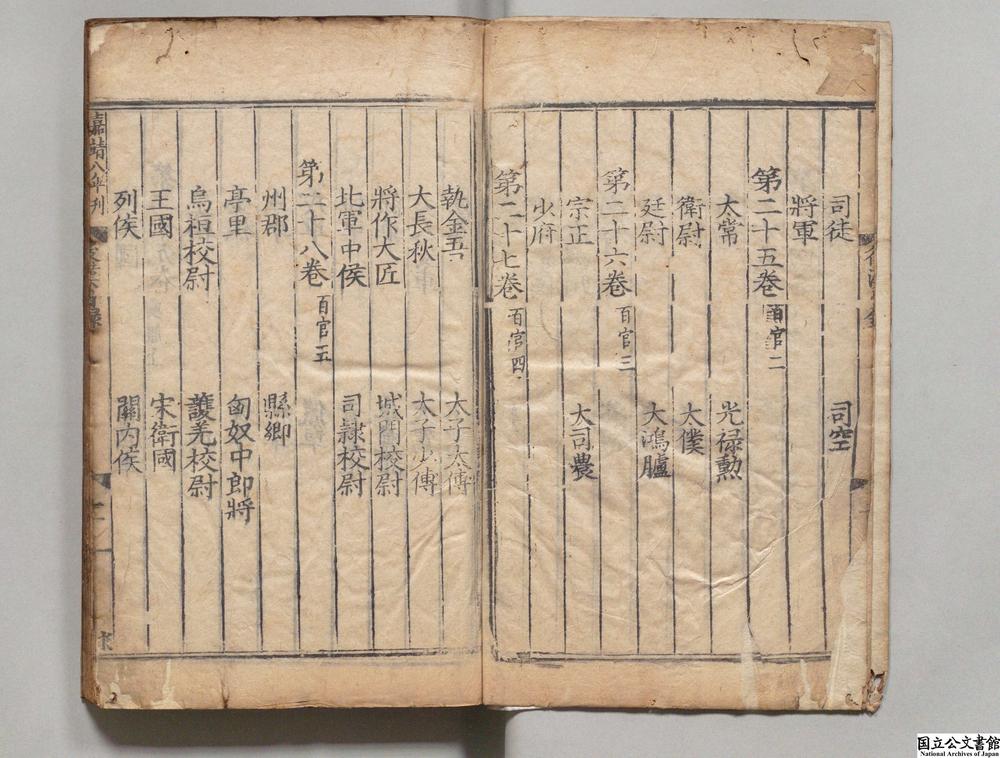 司徒 司空
將軍
第二十五卷 百官二
太常 光禄勲
衛尉 太僕
廷尉 大鴻臚
第二十六卷 百官三
宗正 大司農
少府
第二十七卷 百官四
執金吾 太子太傅
大長秋 太子少傅
將作大匠 城門校尉
北軍中侯 司隷校尉
第二十八卷 百官五
州郡 縣鄉
亭里 匈奴中郎將
烏桓校尉 護羌校尉
王國 宋衛國
列侯 關内侯
嘉靖八年刊
国立公文書館
National Archives of Japan